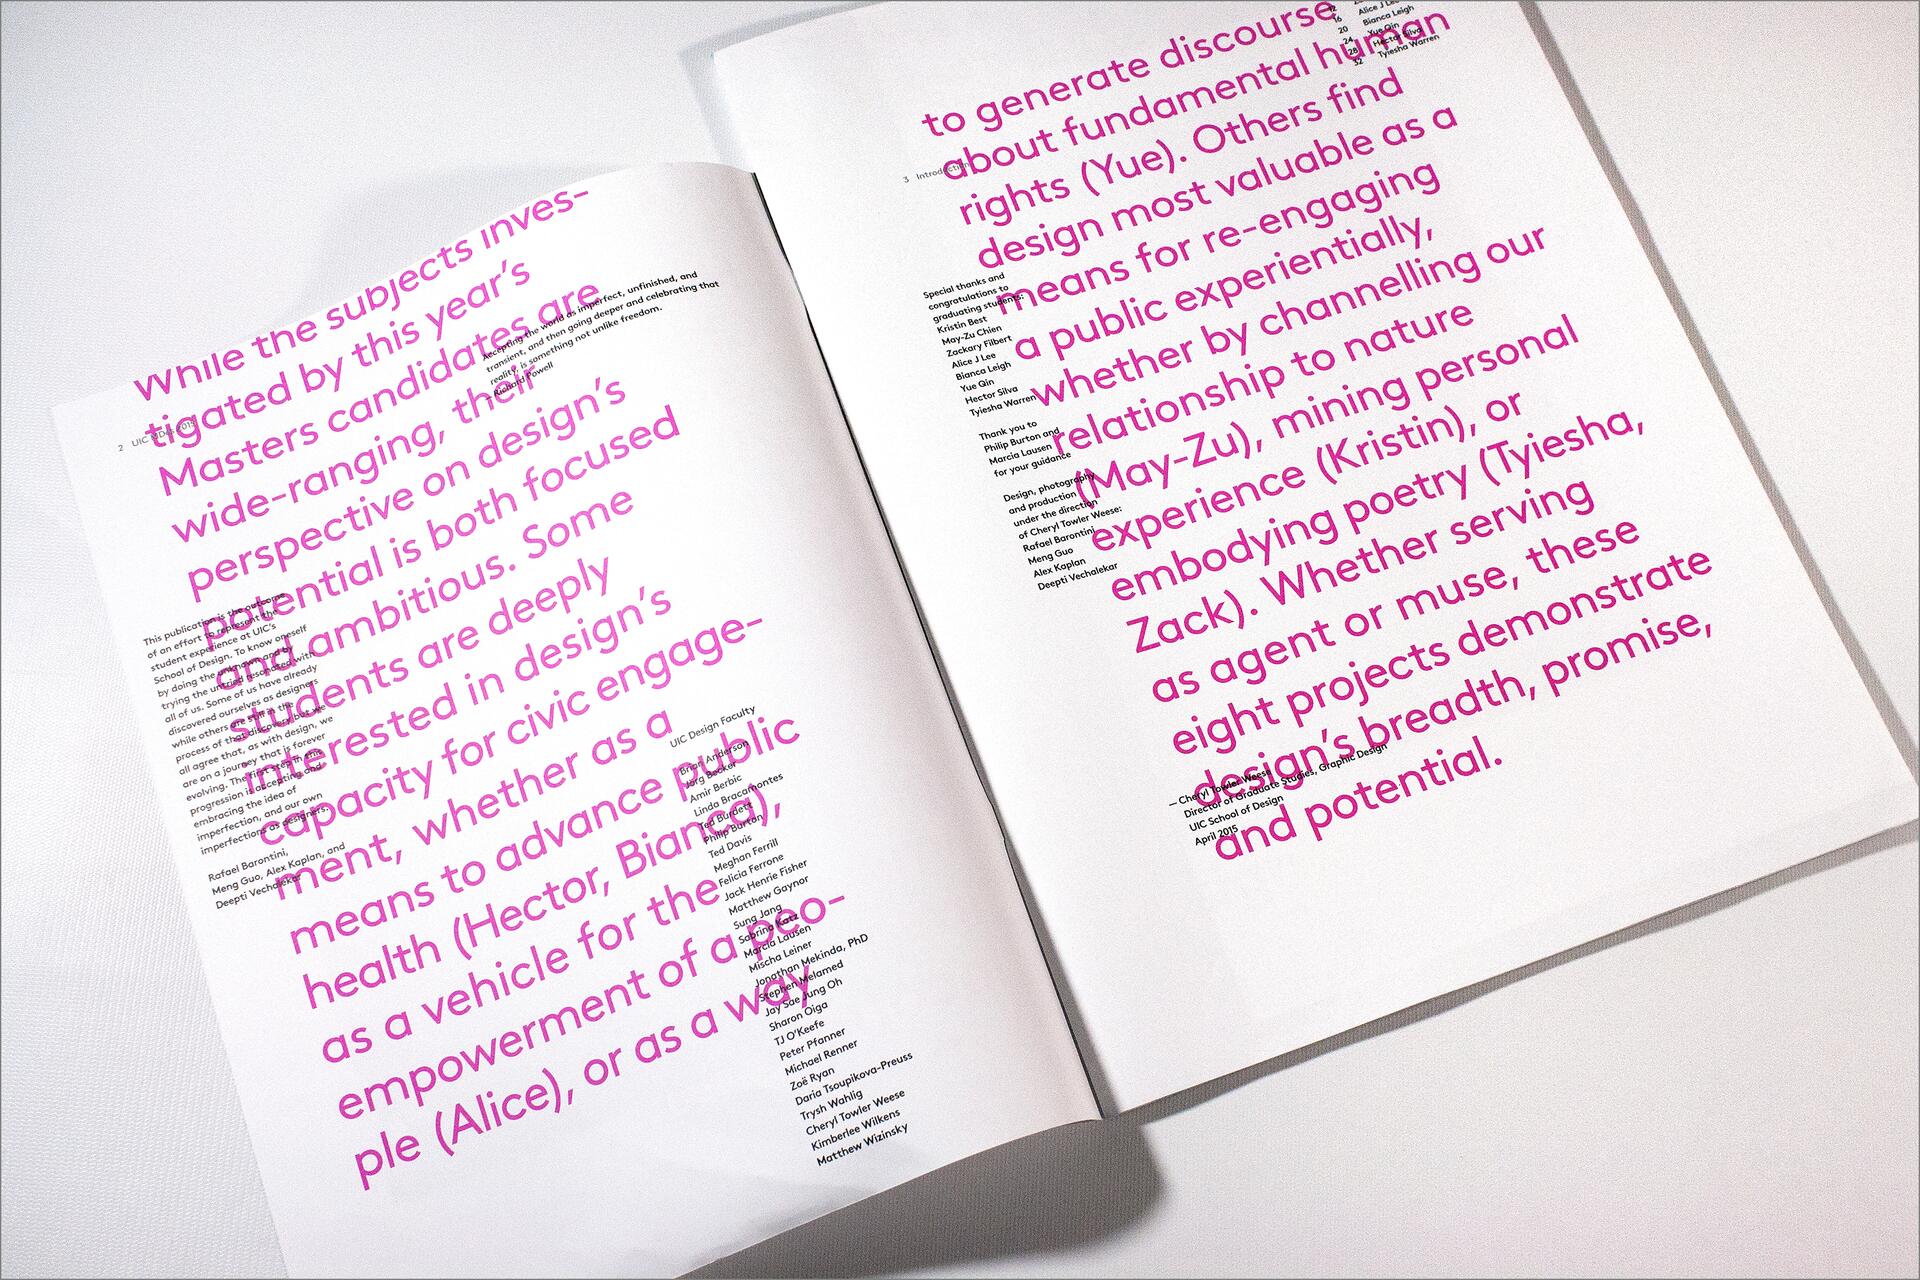 While the subjects inves-
tigated by this year's
Masters candidates are
wide-ranging, their
perspective on design's
potential is both focused
and ambitious. Some
students are deeply
interested in design's
capacity for civic engage-
ment, whether as a
means to advance public
health (Hector, Bianca),
as a vehicle for the
empowerment of a peo-
ple (Alice), or as a way
2 UIC MDes 2015
Accepting the world as imperfect, unfinished, and
transient, and then going deeper and celebrating that
reality, is something not unlike freedom.
—Richard Powell
This publication is the outcome
of an effort to represent the
student experience at UIC's
School of Design. To know oneself
by doing the unknown and by
trying the untried resonated with
all of us. Some of us have already
discovered ourselves as designers
while others are still in the
process of that discovery, but we
all agree that, as with design, we
are on a journey that is forever
evolving. The first step in this
progression is accepting and
embracing the idea of
imperfection, and our own
imperfections as designers.
Rafael Barontini,
Meng Guo, Alex Kaplan, and
Deepti Vechalekar
UIC Design Faculty
Brian Anderson
Jörg Becker
Amir Berbic
Linda Bracamontes
Ted Burdett
Philip Burton
Ted Davis
Meghan Ferrill
Felicia Ferrone
Jack Henrie Fisher
Matthew Gaynor
Sung Jang
Sabrina Katz
Marcia Lausen
Mischa Leiner
Jonathan Mekinda, PhD
Stephen Melamed
Jay Sae Jung Oh
Sharon Oiga
TJ O'Keefe
Peter Pfanner
Michael Renner
Zoë Ryan
Daria Tsoupikova-Preuss
Trysh Wahlig
Cheryl Towler Weese
Kimberlee Wilkens
Matthew Wizinsky
to generate discourse
about fundamental human
rights (Yue). Others find
design most valuable as a
means for re-engaging
a public experientially,
whether by channelling our
relationship to nature
(May-Zu), mining personal
experience (Kristin), or
embodying poetry (Tyiesha,
Zack). Whether serving
as agent or muse, these
eight projects demonstrate
design's breadth, promise,
and potential.
12
16 Alice J Lee
20 Bianca Leigh
24 Yue Qin
28 Hector Silva
32 Tyiesha Warren
3 Introduction
Special thanks and
congratulations to
graduating students:
Kristin Best
May-Zu Chien
Zackary Filbert
Alice J Lee
Bianca Leigh
Yue Qin
Hector Silva
Tyiesha Warren
Thank you to
Philip Burton and
Marcia Lausen
for your guidance
Design, photography
and production
under the direction
of Cheryl Towler Weese:
Rafael Barontini
Meng Guo
Alex Kaplan
Deepti Vechalekar
— Cheryl Towler Weese
Director of Graduate Studies, Graphic Design
UIC School of Design
April 2015